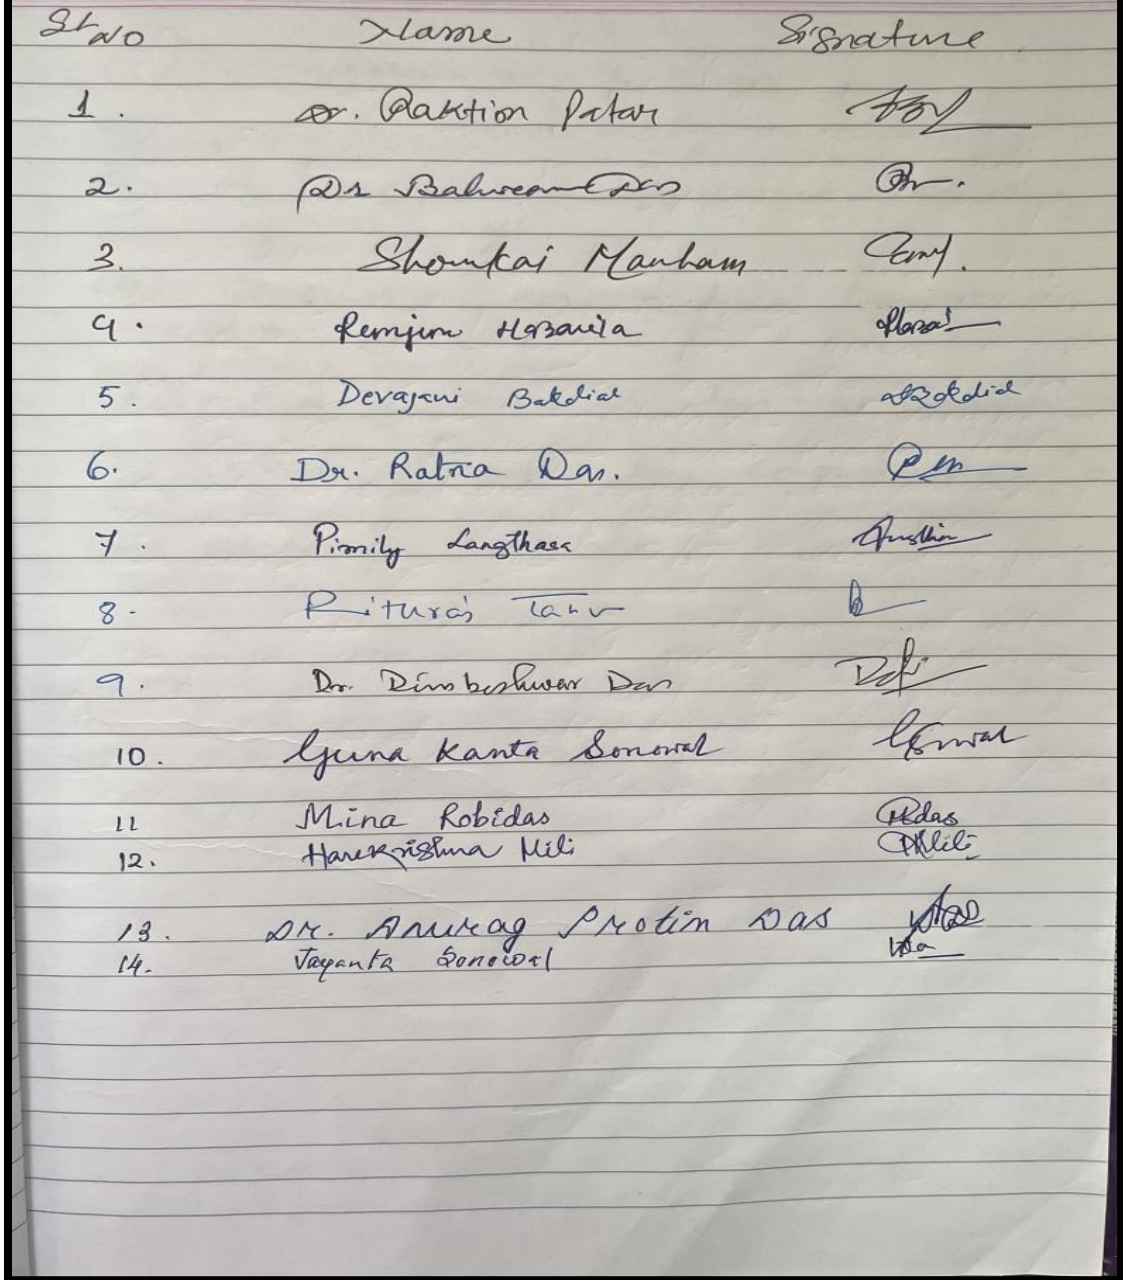 Sl No Name Signature
1. Dr. Raktion Patar
2. Dr Das
3. Shomkai Manham
4. Remjim Hazarila
5. Devajani Bakdial
6. Dr. Ratna Das.
7. Pimily Langthasa
8. Rituraj
9. Dr. Dimbeshwar Das
10. Guna Kanta Sonowal
11 Mina Robidas Rdas
12. Harekrishna Mili Mili
13. Dr. Anurag Protim Das
14. Jayanta Sonowal